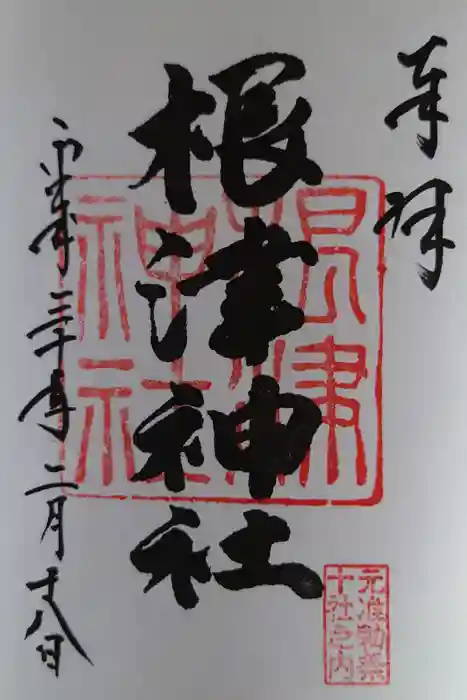 奉拝
根津神社
平成三十年二月十八日
根津
神社
元准勅祭
十社之内